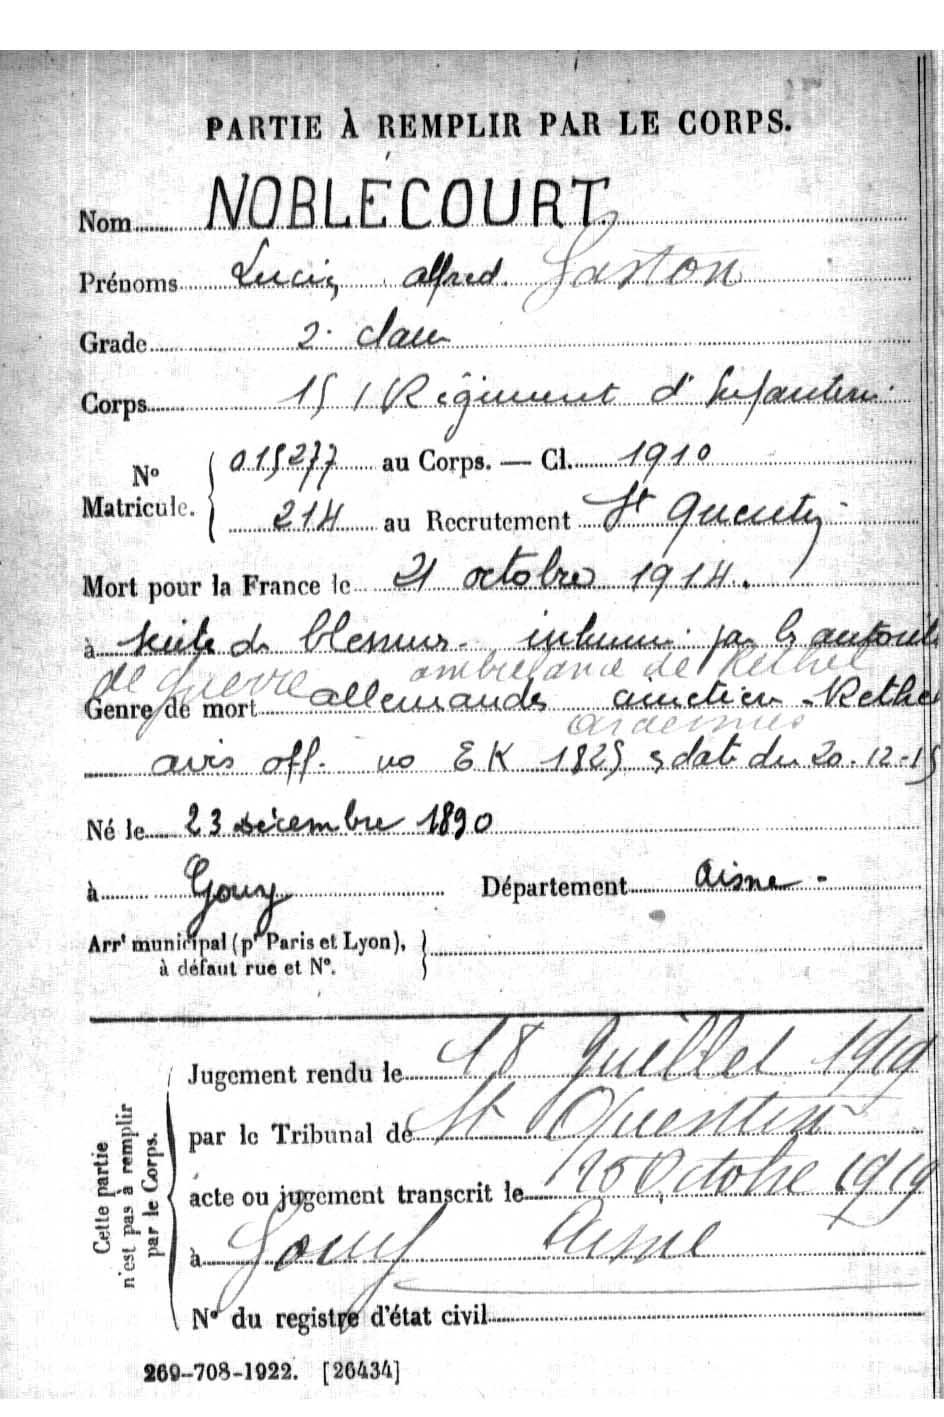 PARTIE À REMPLIR PAR LE CORPS.
Nom NOBLÉCOURT
Prénoms Lucien Alfred. Gaston
Grade 2e classe
Corps 151 Régiment d'Infanterie
N° Matricule. 015277 au Corps. — Cl. 1910
214 au Recrutement St Quentin
Mort pour la France le 21 octobre 1914.
à suite de blessures - inhumé par les autorités
de guerre ambulance de Rethel
Genre de mort allemandes cimetière - Rethel
ardennes
avis off. no EK 1825, date du 20-12-15
Né le 23 décembre 1890
à Gouy Département Aisne -
Arrt municipal (pr Paris et Lyon),
à défaut rue et N°.
Cette partie
n'est pas à remplir
par le Corps.
Jugement rendu le 18 Juillet 1919
par le Tribunal de St Quentin
acte ou jugement transcrit le 20 Octobre 1919
à Gouy Aisne
N° du registre d'état civil
269-708-1922. [26434]